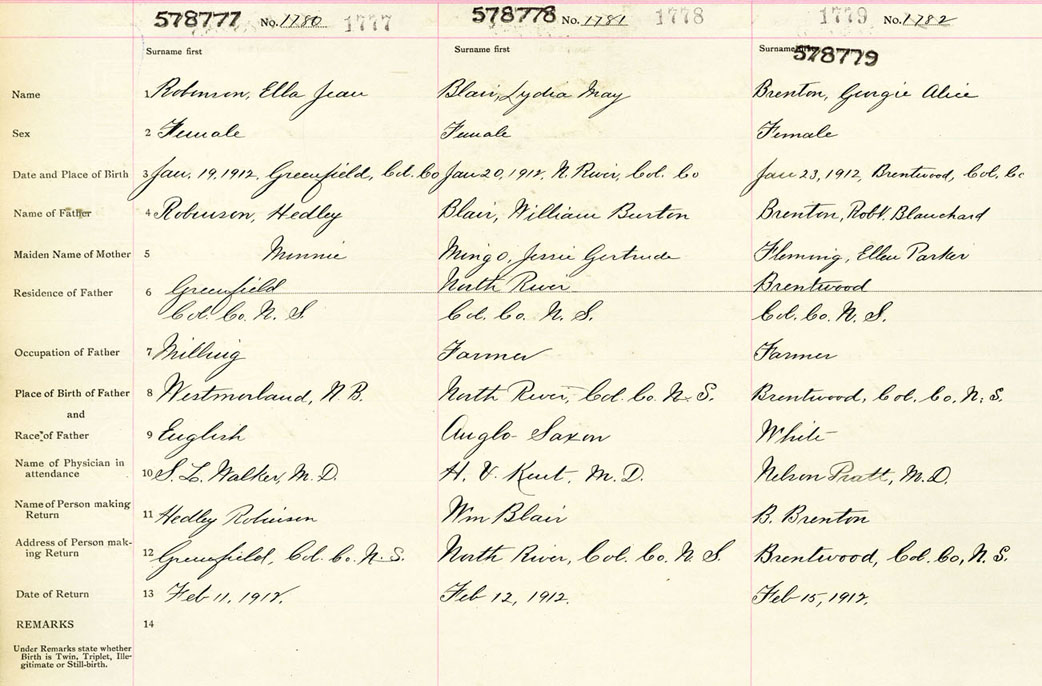 578777 No. 1780 1777 578778 No. 1781 1778 1779 No. 1782
Surname first Surname first Surname first 578779
Name 1 Robinson, Ella Jean Blair, Lydia May Brenton, Georgie Alice
Sex 2 Female Female Female
Date and Place of Birth 3 Jan. 19, 1912, Greenfield, Col. Co Jan 20, 1912, N. River, Col. Co Jan 23, 1912, Brentwood, Col. Co
Name of Father 4 Robinson, Hedley Blair, William Burton Brenton, Robt. Blanchard
Maiden Name of Mother 5 Minnie Mingo, Jessie Gertrude Fleming, Ellen Parker
Residence of Father 6 Greenfield North River Brentwood
Col. Co. N. S. Col. Co. N. S. Col. Co. N. S.
Occupation of Father 7 Milling Farmer Farmer
Place of Birth of Father 8 Westmorland, N. B. North River, Col. Co. N. S. Brentwood, Col. Co. N. S.
and
Race of Father 9 English Anglo-Saxon White
Name of Physician in
attendance 10 S. L. Walker, M. D. H. V. Kent, M. D. Nelson Pratt, M. D.
Name of Person making
Return 11 Hedley Robinson Wm Blair B. Brenton
Address of Person mak-
ing Return 12 Greenfield, Col. Co. N. S. North River, Col. Co. N. S. Brentwood, Col. Co, N. S.
Date of Return 13 Feb 11, 1912. Feb 12, 1912. Feb 15, 1912.
REMARKS 14
Under Remarks state whether
Birth is Twin, Triplet, Ille-
gitimate or Still-birth.